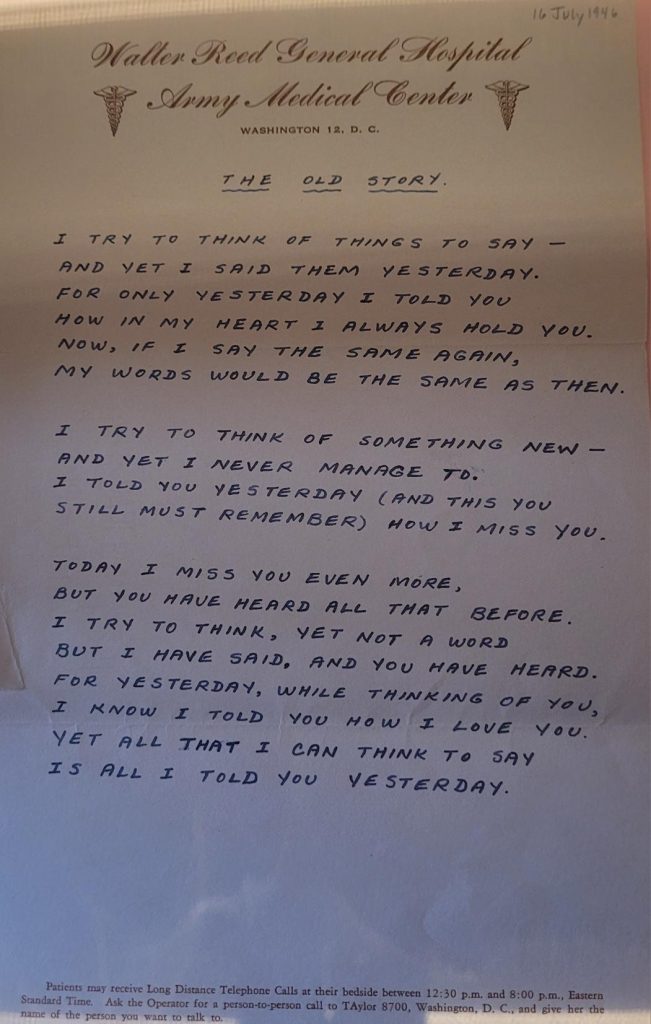 16 July 1946
Walter Reed General Hospital
Army Medical Center
WASHINGTON 12, D. C.
THE OLD STORY.
I TRY TO THINK OF THINGS TO SAY —
AND YET I SAID THEM YESTERDAY.
FOR ONLY YESTERDAY I TOLD YOU
HOW IN MY HEART I ALWAYS HOLD YOU.
NOW, IF I SAY THE SAME AGAIN,
MY WORDS WOULD BE THE SAME AS THEN.
I TRY TO THINK OF SOMETHING NEW —
AND YET I NEVER MANAGE TO.
I TOLD YOU YESTERDAY (AND THIS YOU
STILL MUST REMEMBER) HOW I MISS YOU.
TODAY I MISS YOU EVEN MORE,
BUT YOU HAVE HEARD ALL THAT BEFORE.
I TRY TO THINK, YET NOT A WORD
BUT I HAVE SAID, AND YOU HAVE HEARD.
FOR YESTERDAY, WHILE THINKING OF YOU,
I KNOW I TOLD YOU HOW I LOVE YOU.
YET ALL THAT I CAN THINK TO SAY
IS ALL I TOLD YOU YESTERDAY.
Patients may receive Long Distance Telephone Calls at their bedside between 12:30 p.m. and 8:00 p.m., Eastern
Standard Time. Ask the Operator for a person-to-person call to TAylor 8700, Washington, D. C., and give her the
name of the person you want to talk to.